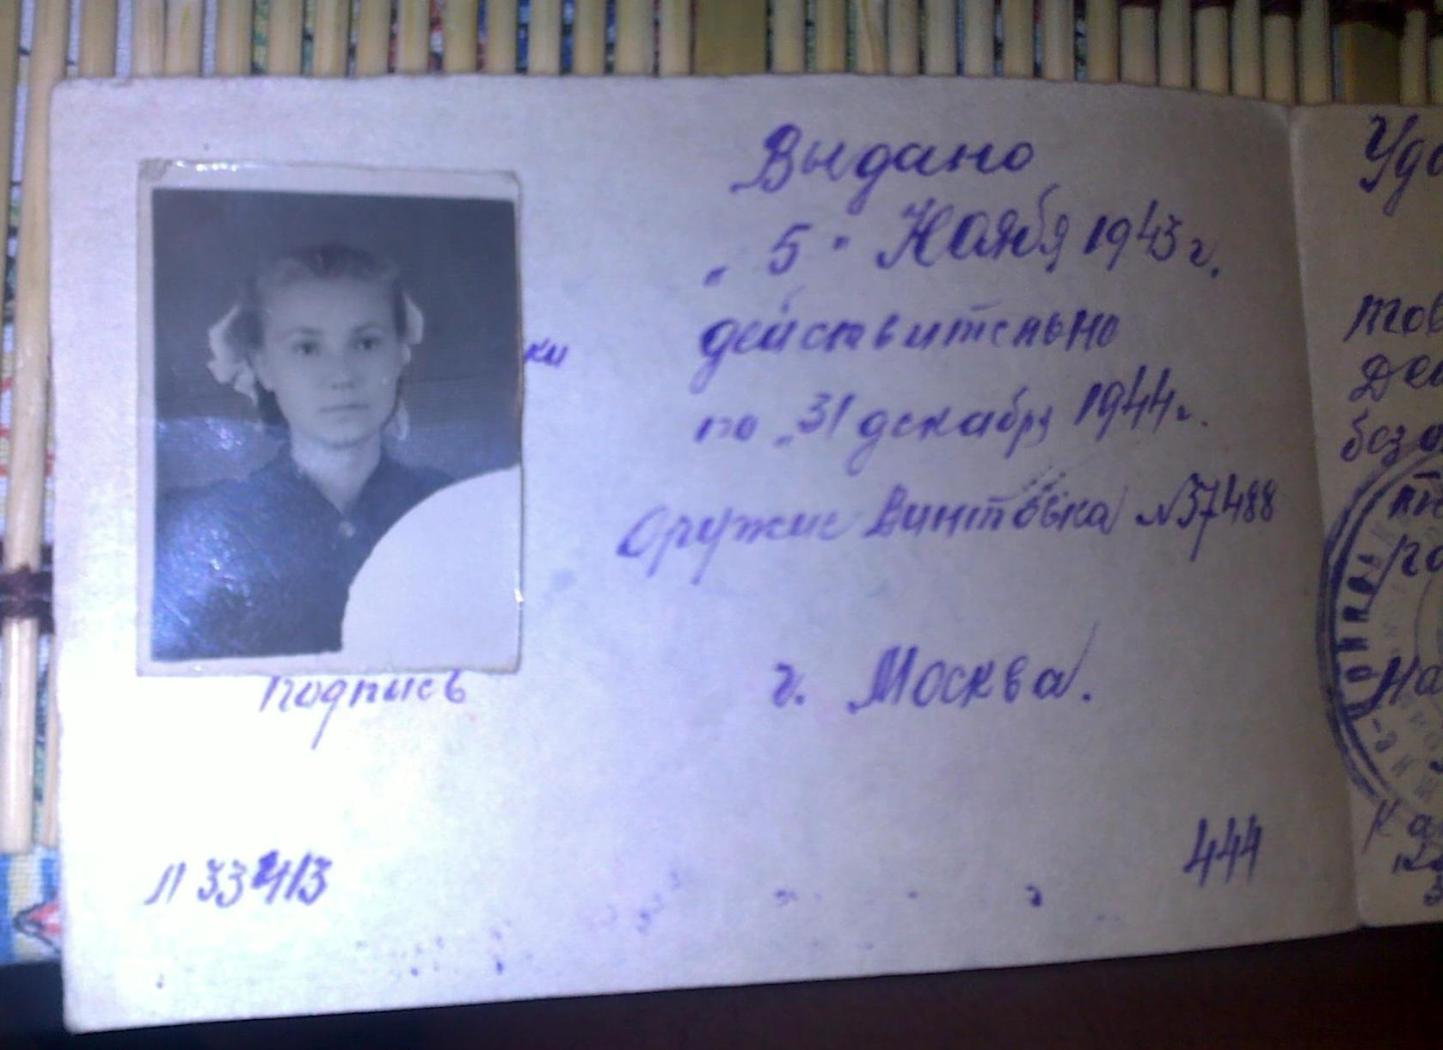 Выдано
„ 5 " Ноября 1943 г.
действительно
по „31 декабря 1944 г.
Оружие Винтовка №37488
г. Москва.
ки
подпись
Л 332413
444
Удо
тов
Дей
без о